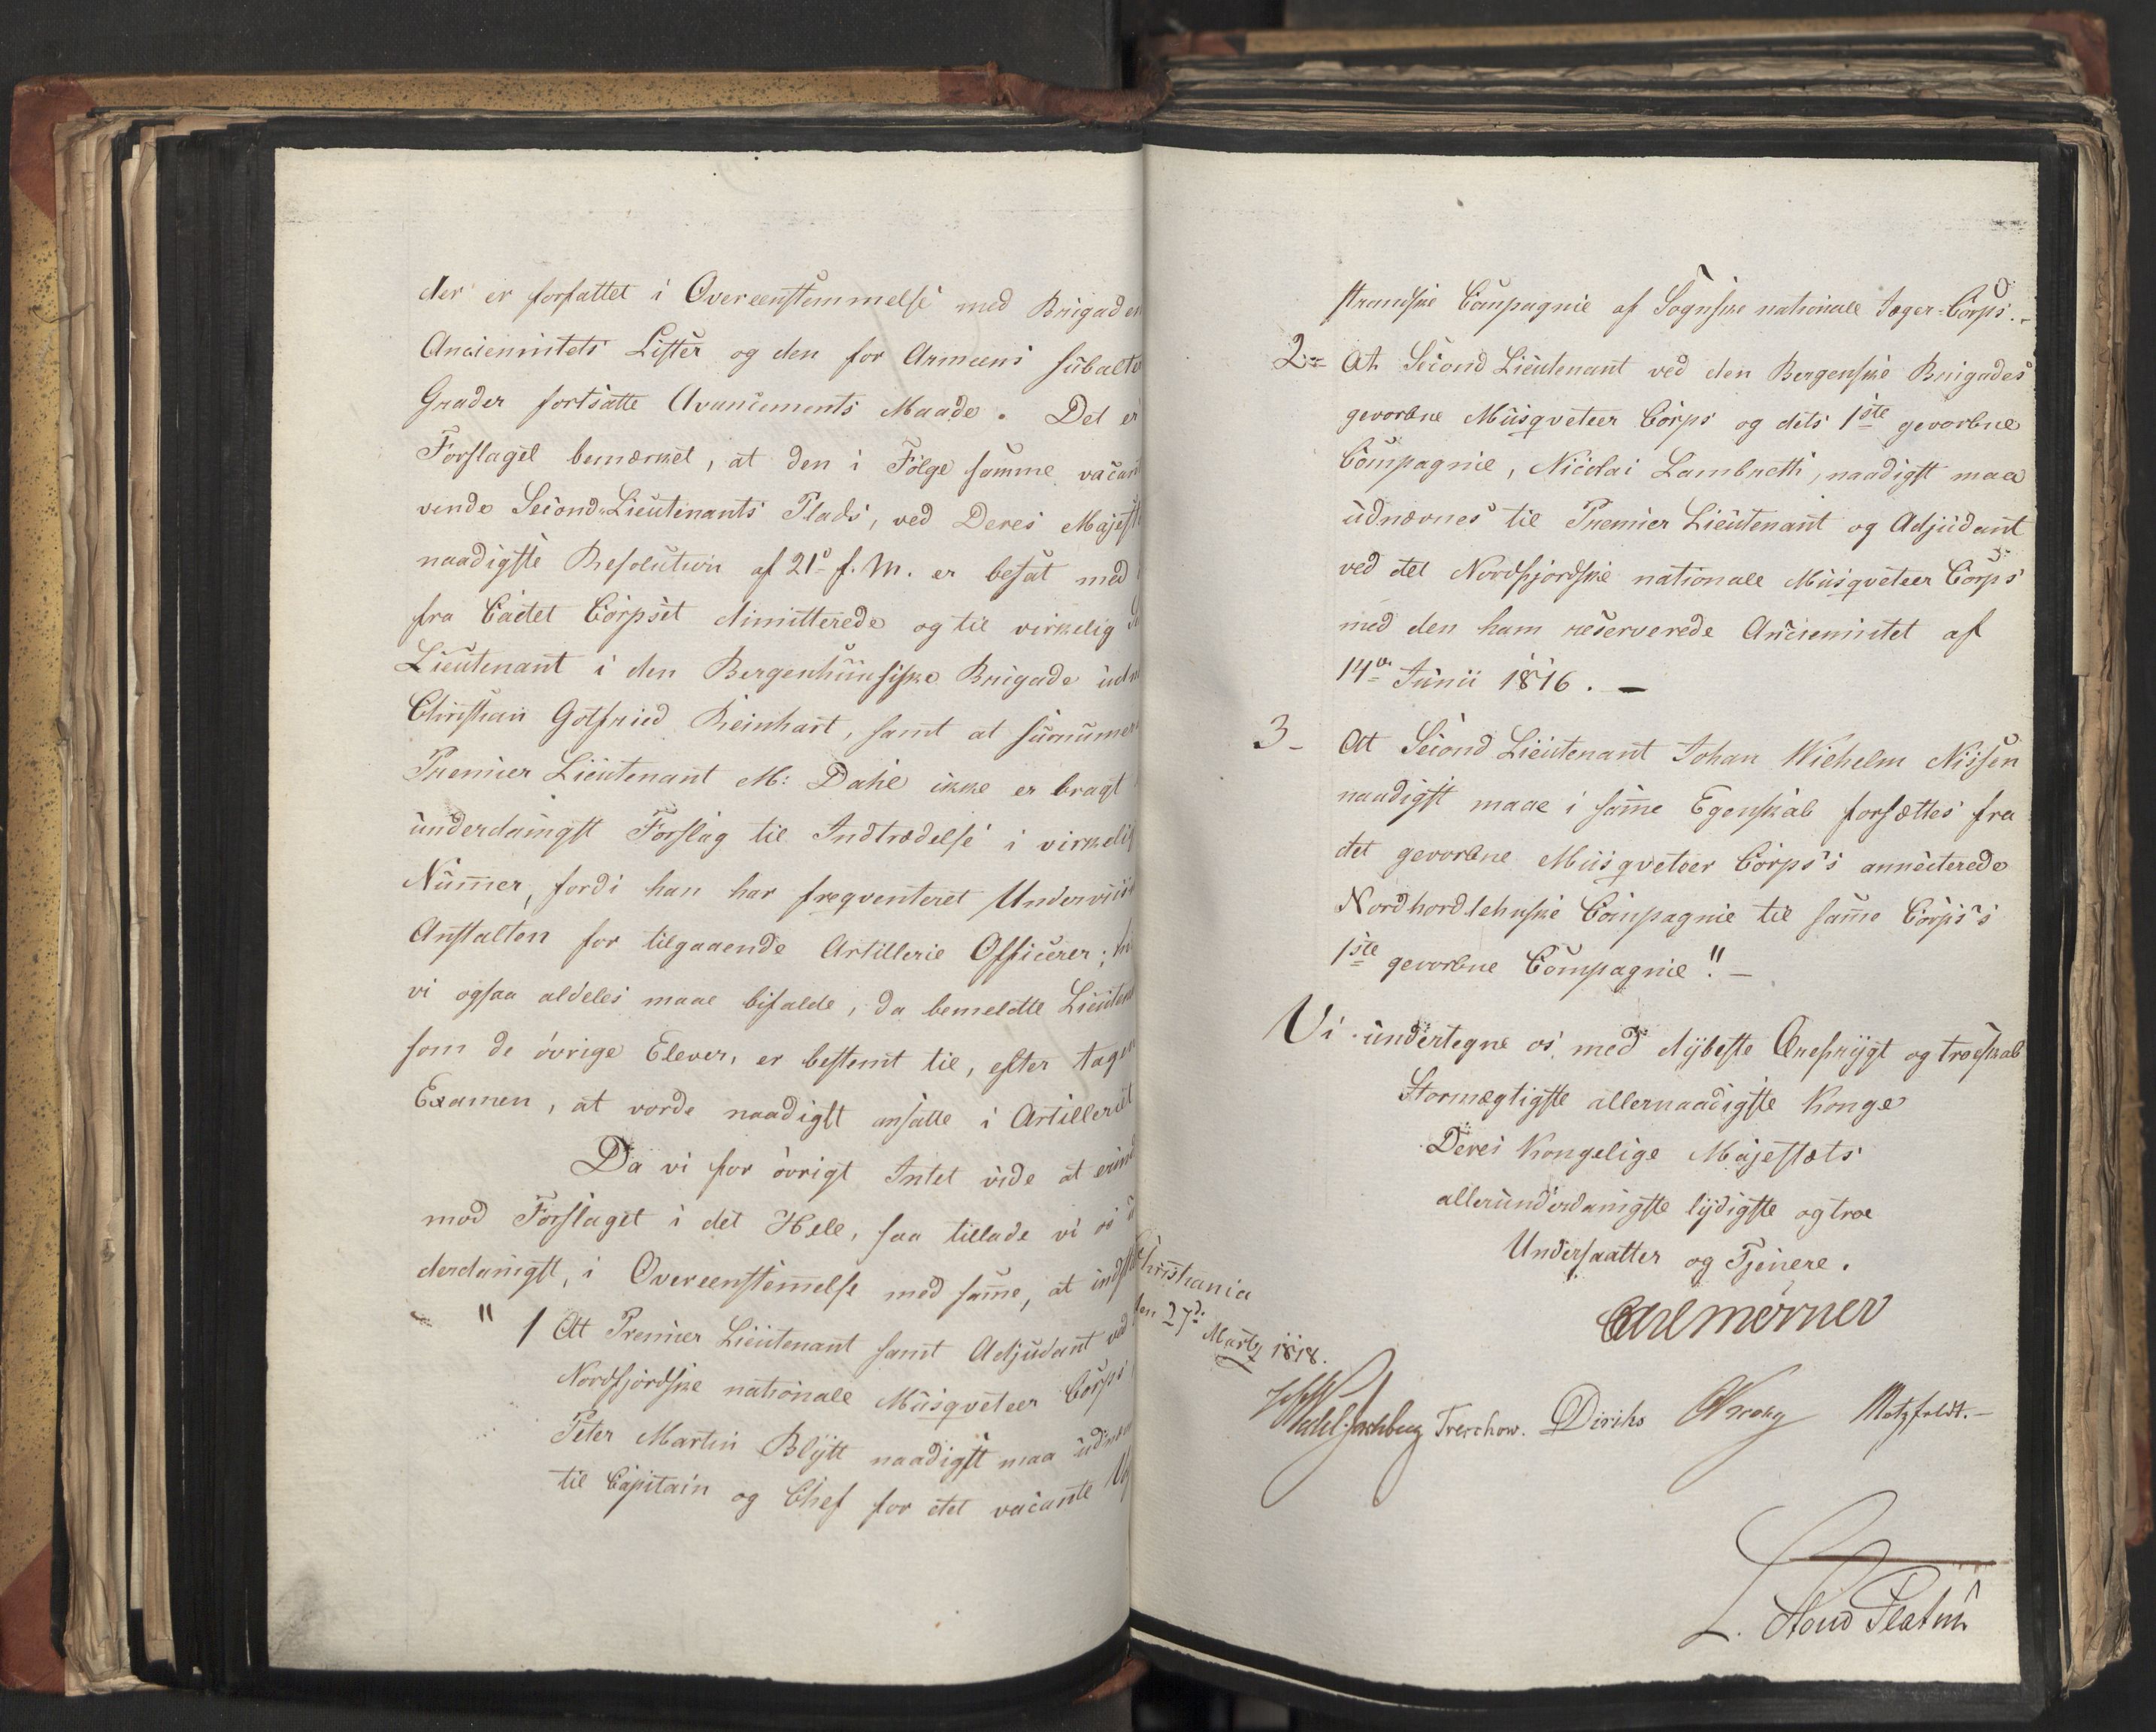 der er forfattet i Overeenstemmelse med Brigaden
Anciennitets Lister og den for Armeens subalte
Grader fortsatte Avancements Maade. Det er
Forslaget bemærket, at den i Følge samme vacant
vende Second-Lieutenants Plads, ved Deres Majest
naadigste Resolution af 21de f. M. er besat med
fra Cadet Corpset dimitterede og til virkelig
Lieutenant i den Bergenhuusiske Brigade udn
Christian Gotfried Reinhart, samt at surnumer
Premier Lieutenant M: Dahl ikke er bragt
underdanigst Forslag til Indtrædelse i virkelig
Nummer, fordi han har freqventeret Underviis
Anstalten for tilgaaende Artillerie Officerer;
vi ogsaa aldeles maae bifalde, da bemeldte Lieuten
som de øvrige Elever, er bestemt til, efter tagen
Examen, at vorde naadigst ansatte i Artilleriet
Da vi for øvrigt Intet vide at erind
mod Forslaget i det Hele, saa tillade vi os u
derdanigst, i Overeenstem̄else med sam̄e, at indst
" 1 At Premier Lieutenant samt Adjudant ved
Nordfjordske nationale Musqveteer Corps
Peter Martin Blytt naadigst maa udnæv
til Capitain og Chef for det vacante
strandske Compagnie af Sognske nationale Jæger-Corps.-
2- At Second Lieutenant ved den Bergenske Brigades
gevorbne Musqveteer Corps og dets 1ste gevorbne
Compagnie, Nicolai Lambrech, naadigst maa
udnævnes til Premier Lieutenant og Adjudant
ved det Nordfjordske nationale Musqveteer Corps
med den ham reserverede Anciennitet af
14de Junii 1816. —
3- At Second Lieutenant Johan Wilhelm Nissen
naadigst maae i sam̄e Egenskab forsættes fra
det gevorbne Musqveteer Corps's annecterede
Nordhordlehnske Compagnie til sam̄e Corps's
1ste gevorbne Compagnie". —
Vi undertegne os med dybeste Ærefrygt og troeskab
Stormægtigste allernaadigste Konge
Deres Kongelige Majestæts
allerunderdanigste lydigste og troe
Undersaatter og Tjenere.
Christiania
den 27de Marty 1818.
Carl Mörner
Wedel Jarlsberg Treschow. Diriks Krohg Motzfeldt.-
L. Stoud Platou